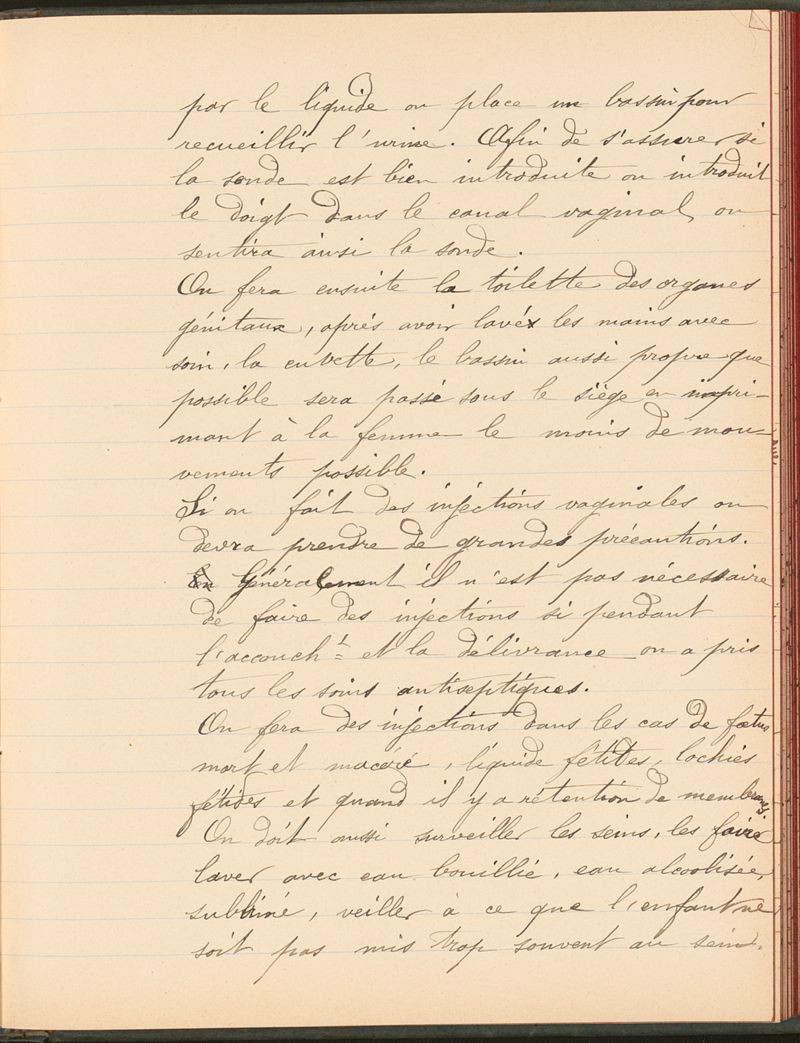 par le liquide on place un bassin pour
recueillir l'urine. Afin de s'assurer si
la sonde est bien introduite on introduit
le doigt dans le canal vaginal, on
sentira ainsi la sonde.
On fera ensuite la toilette des organes
génitaux, après avoir lavés les mains avec
soin, la cuvette, le bassin aussi propre que
possible sera passé sous le siège en impri-
mant à la femme le moins de mou-
vements possible.
Si on fait des injections vaginales on
devra prendre de grandes précautions.
Généralement il n'est pas nécessaire
de faire des injections si pendant
l'accouch.t et la délivrance on a pris
tous les soins antiseptiques.
On fera des injections dans les cas de fœtus
mort et macéré, liquide fétides, lochies
fétides et quand il y a rétention de membranes.
On doit aussi surveiller les seins, les faire
laver avec eau bouillie, eau alcoolisée,
sublimé, veiller à ce que l'enfant ne
soit pas mis trop souvent au sein.